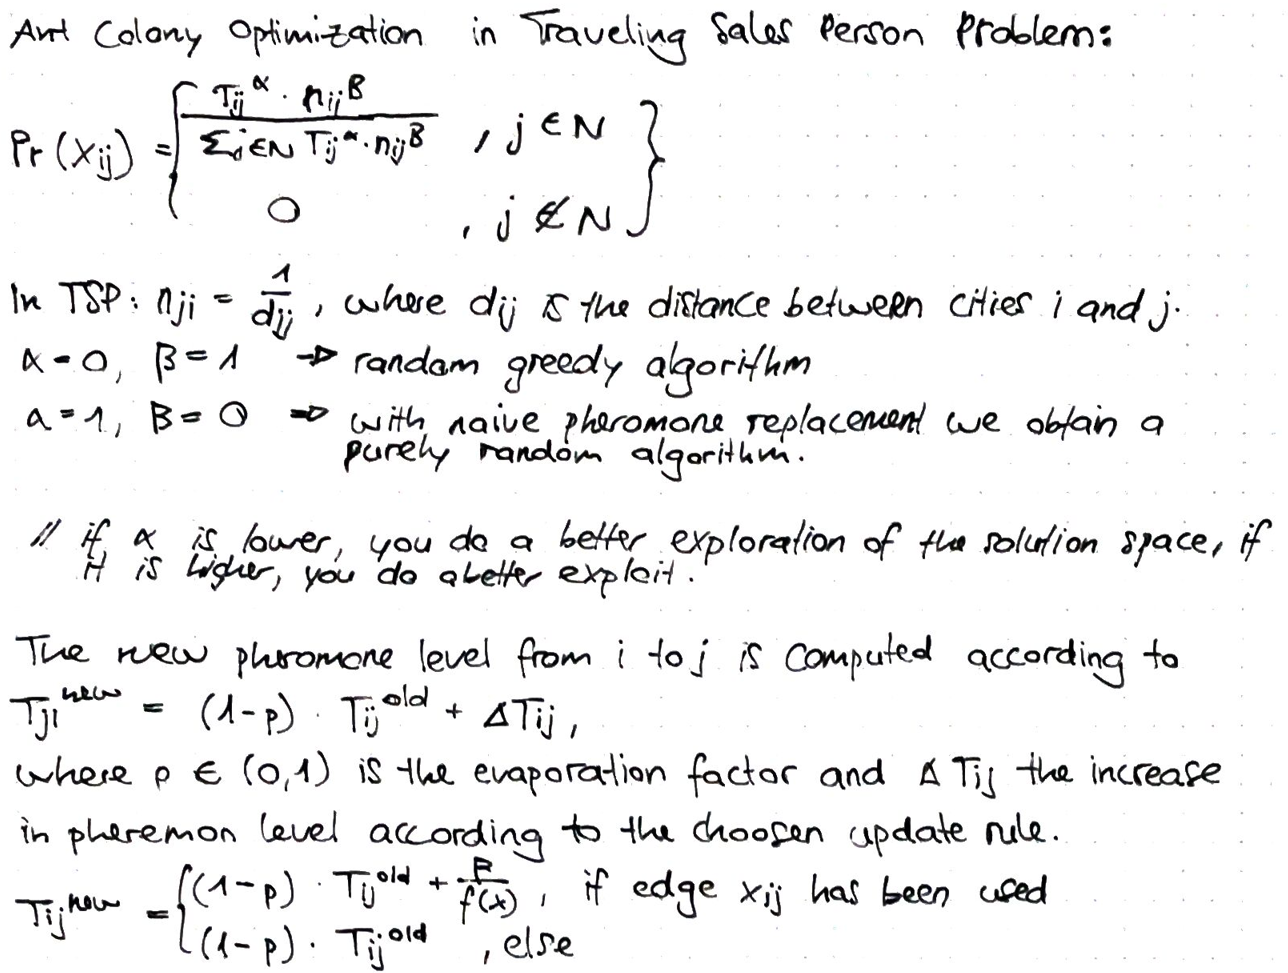 Ant Colony Optimization in Traveling Sales Person Problem:
Pr(xij) = { Tij^α · nij^β / Σj∈N Tij^α · nij^β , j ∈ N }
0 , j ∉ N
In TSP: nji = 1/dij, where dij is the distance between cities i and j.
α = 0, β = 1 → random greedy algorithm
a = 1, β = 0 → with naive pheromone replacement we obtain a
purely random algorithm.
// if α is lower, you do a better exploration of the solution space, if
it is higher, you do a better exploit.
The new phromone level from i to j is computed according to
Tji^new = (1-p) · Tij^old + ΔTij,
where p ∈ (0,1) is the evaporation factor and ΔTij the increase
in pheremon level according to the choosen update rule.
Tij^new = { (1-p) · Tij^old + β/f(x), if edge xij has been used
(1-p) · Tij^old , else